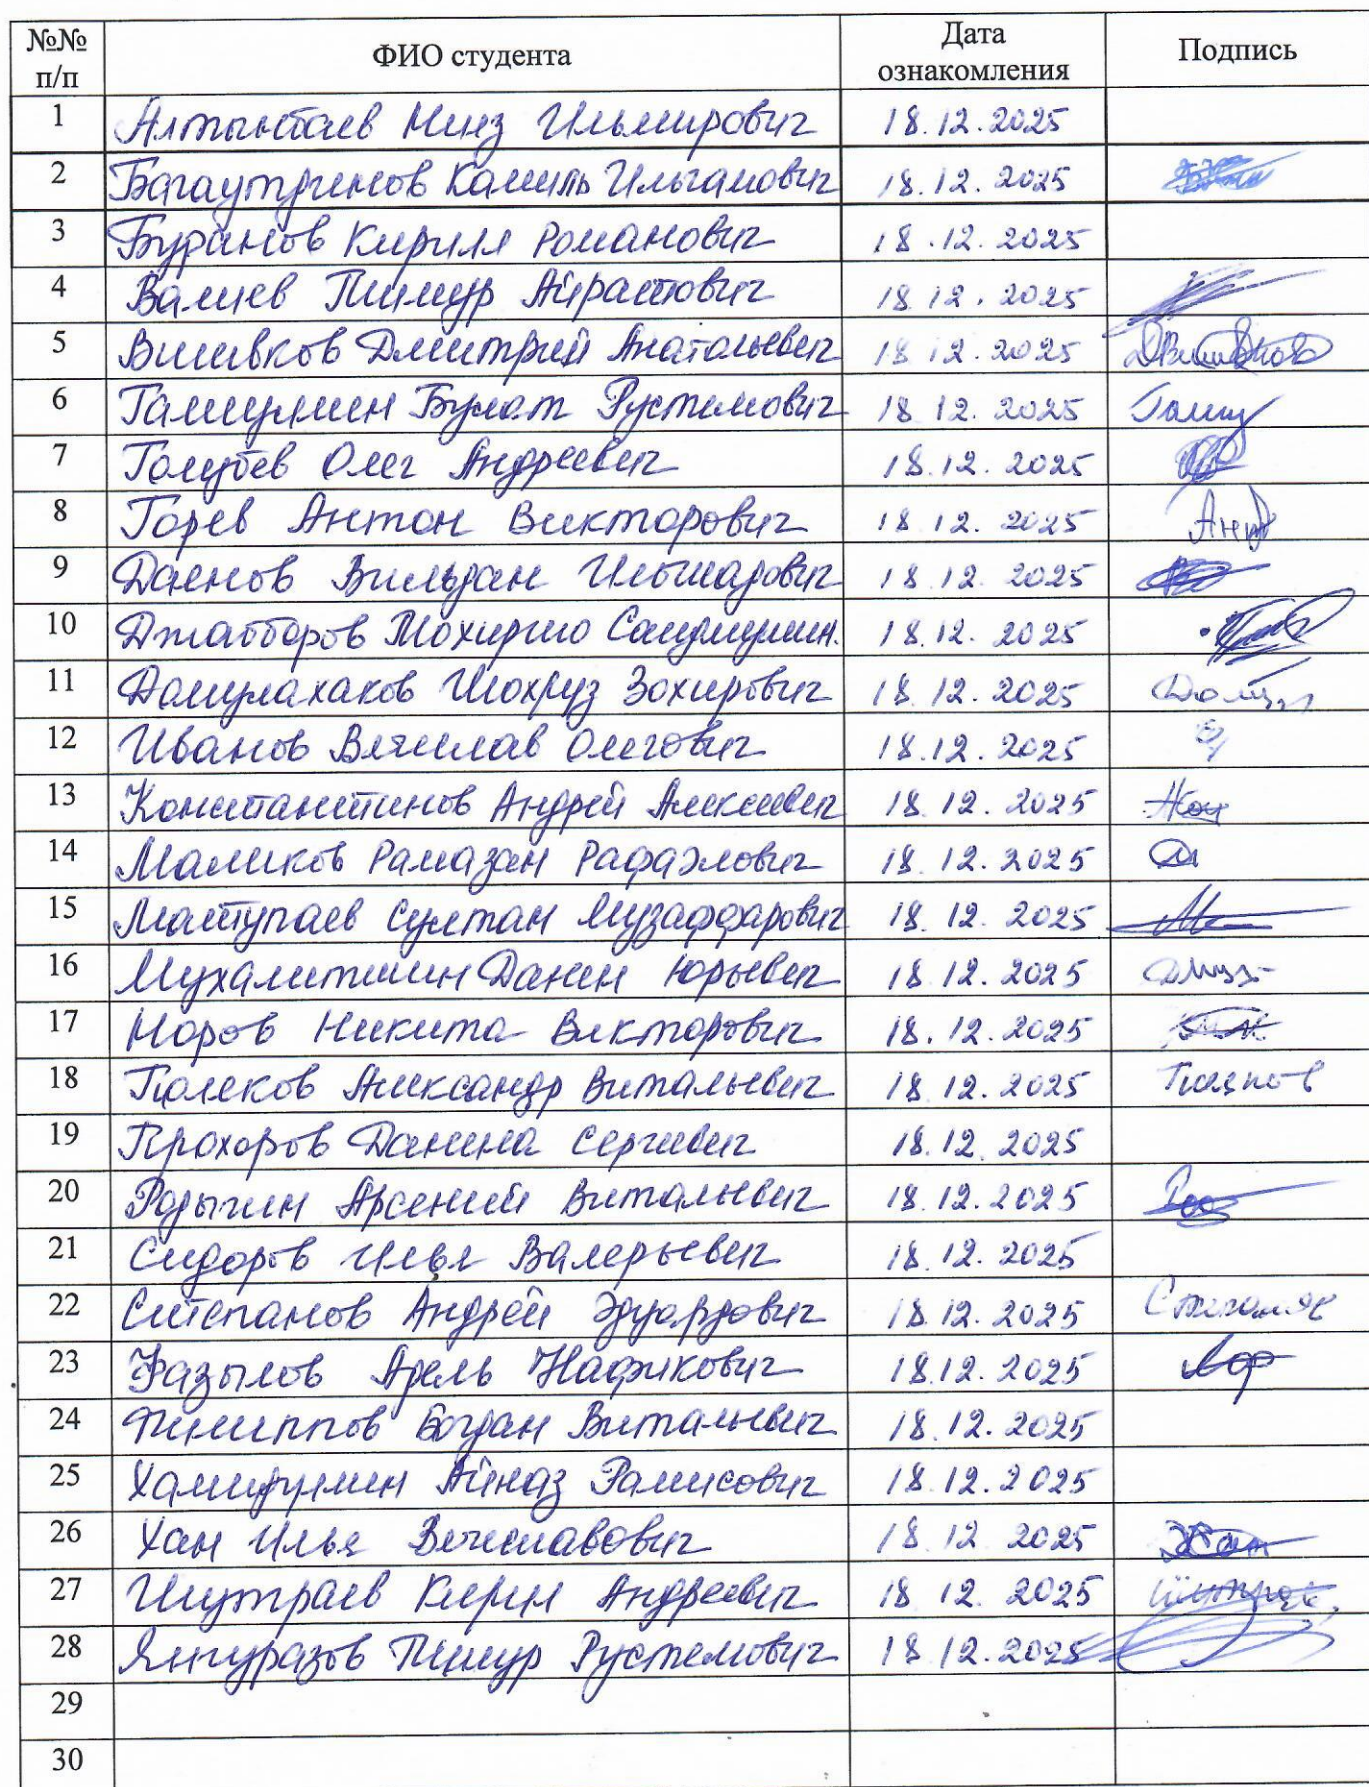 №№ п/п ФИО студента Дата ознакомления Подпись
1 Алтынбаев Нияз Ильмирович 18.12.2025
2 Багаутдинов Камиль Ильгамович 18.12.2025
3 Буранов Кирилл Романович 18.12.2025
4 Валиев Тимур Айратович 18.12.2025
5 Вшивков Дмитрий Анатольевич 18.12.2025 ДВшивков
6 Гамиулин Булат Рустемович 18.12.2025
7 Голубев Олег Андреевич 18.12.2025
8 Горев Антон Викторович 18.12.2025
9 Даенов Вильдан Ильшадович 18.12.2025
10 Джабборов Мохиршо 18.12.2025
11 Домулахаков Шохруз Зохирович 18.12.2025
12 Иванов Олегович 18.12.2025
13 Константинов Андрей Алексеевич 18.12.2025
14 Маликов Рамазан Рафаэлович 18.12.2025
15 Матупаев Султан Музаффарович 18.12.2025
16 Мухаметшин Данил Юрьевич 18.12.2025
17 Норов Никита Викторович 18.12.2025
18 Поляков Александр Витальевич 18.12.2025
19 Прохоров Данила Сергеевич 18.12.2025
20 Родыгин Арсений Витальевич 18.12.2025
21 Сидоров Илья Валерьевич 18.12.2025
22 Степанов Андрей Эдуардович 18.12.2025
23 Фазылов Арель Нафикович 18.12.2025
24 Филиппов Богдан Витальевич 18.12.2025
25 Хамидуллин Айназ Рамисович 18.12.2025
26 Хан Илья Вячеславович 18.12.2025
27 Шутраев Кирил Андреевич 18.12.2025
28 Янгуразов Тимур Рустемович 18.12.2025
29
30